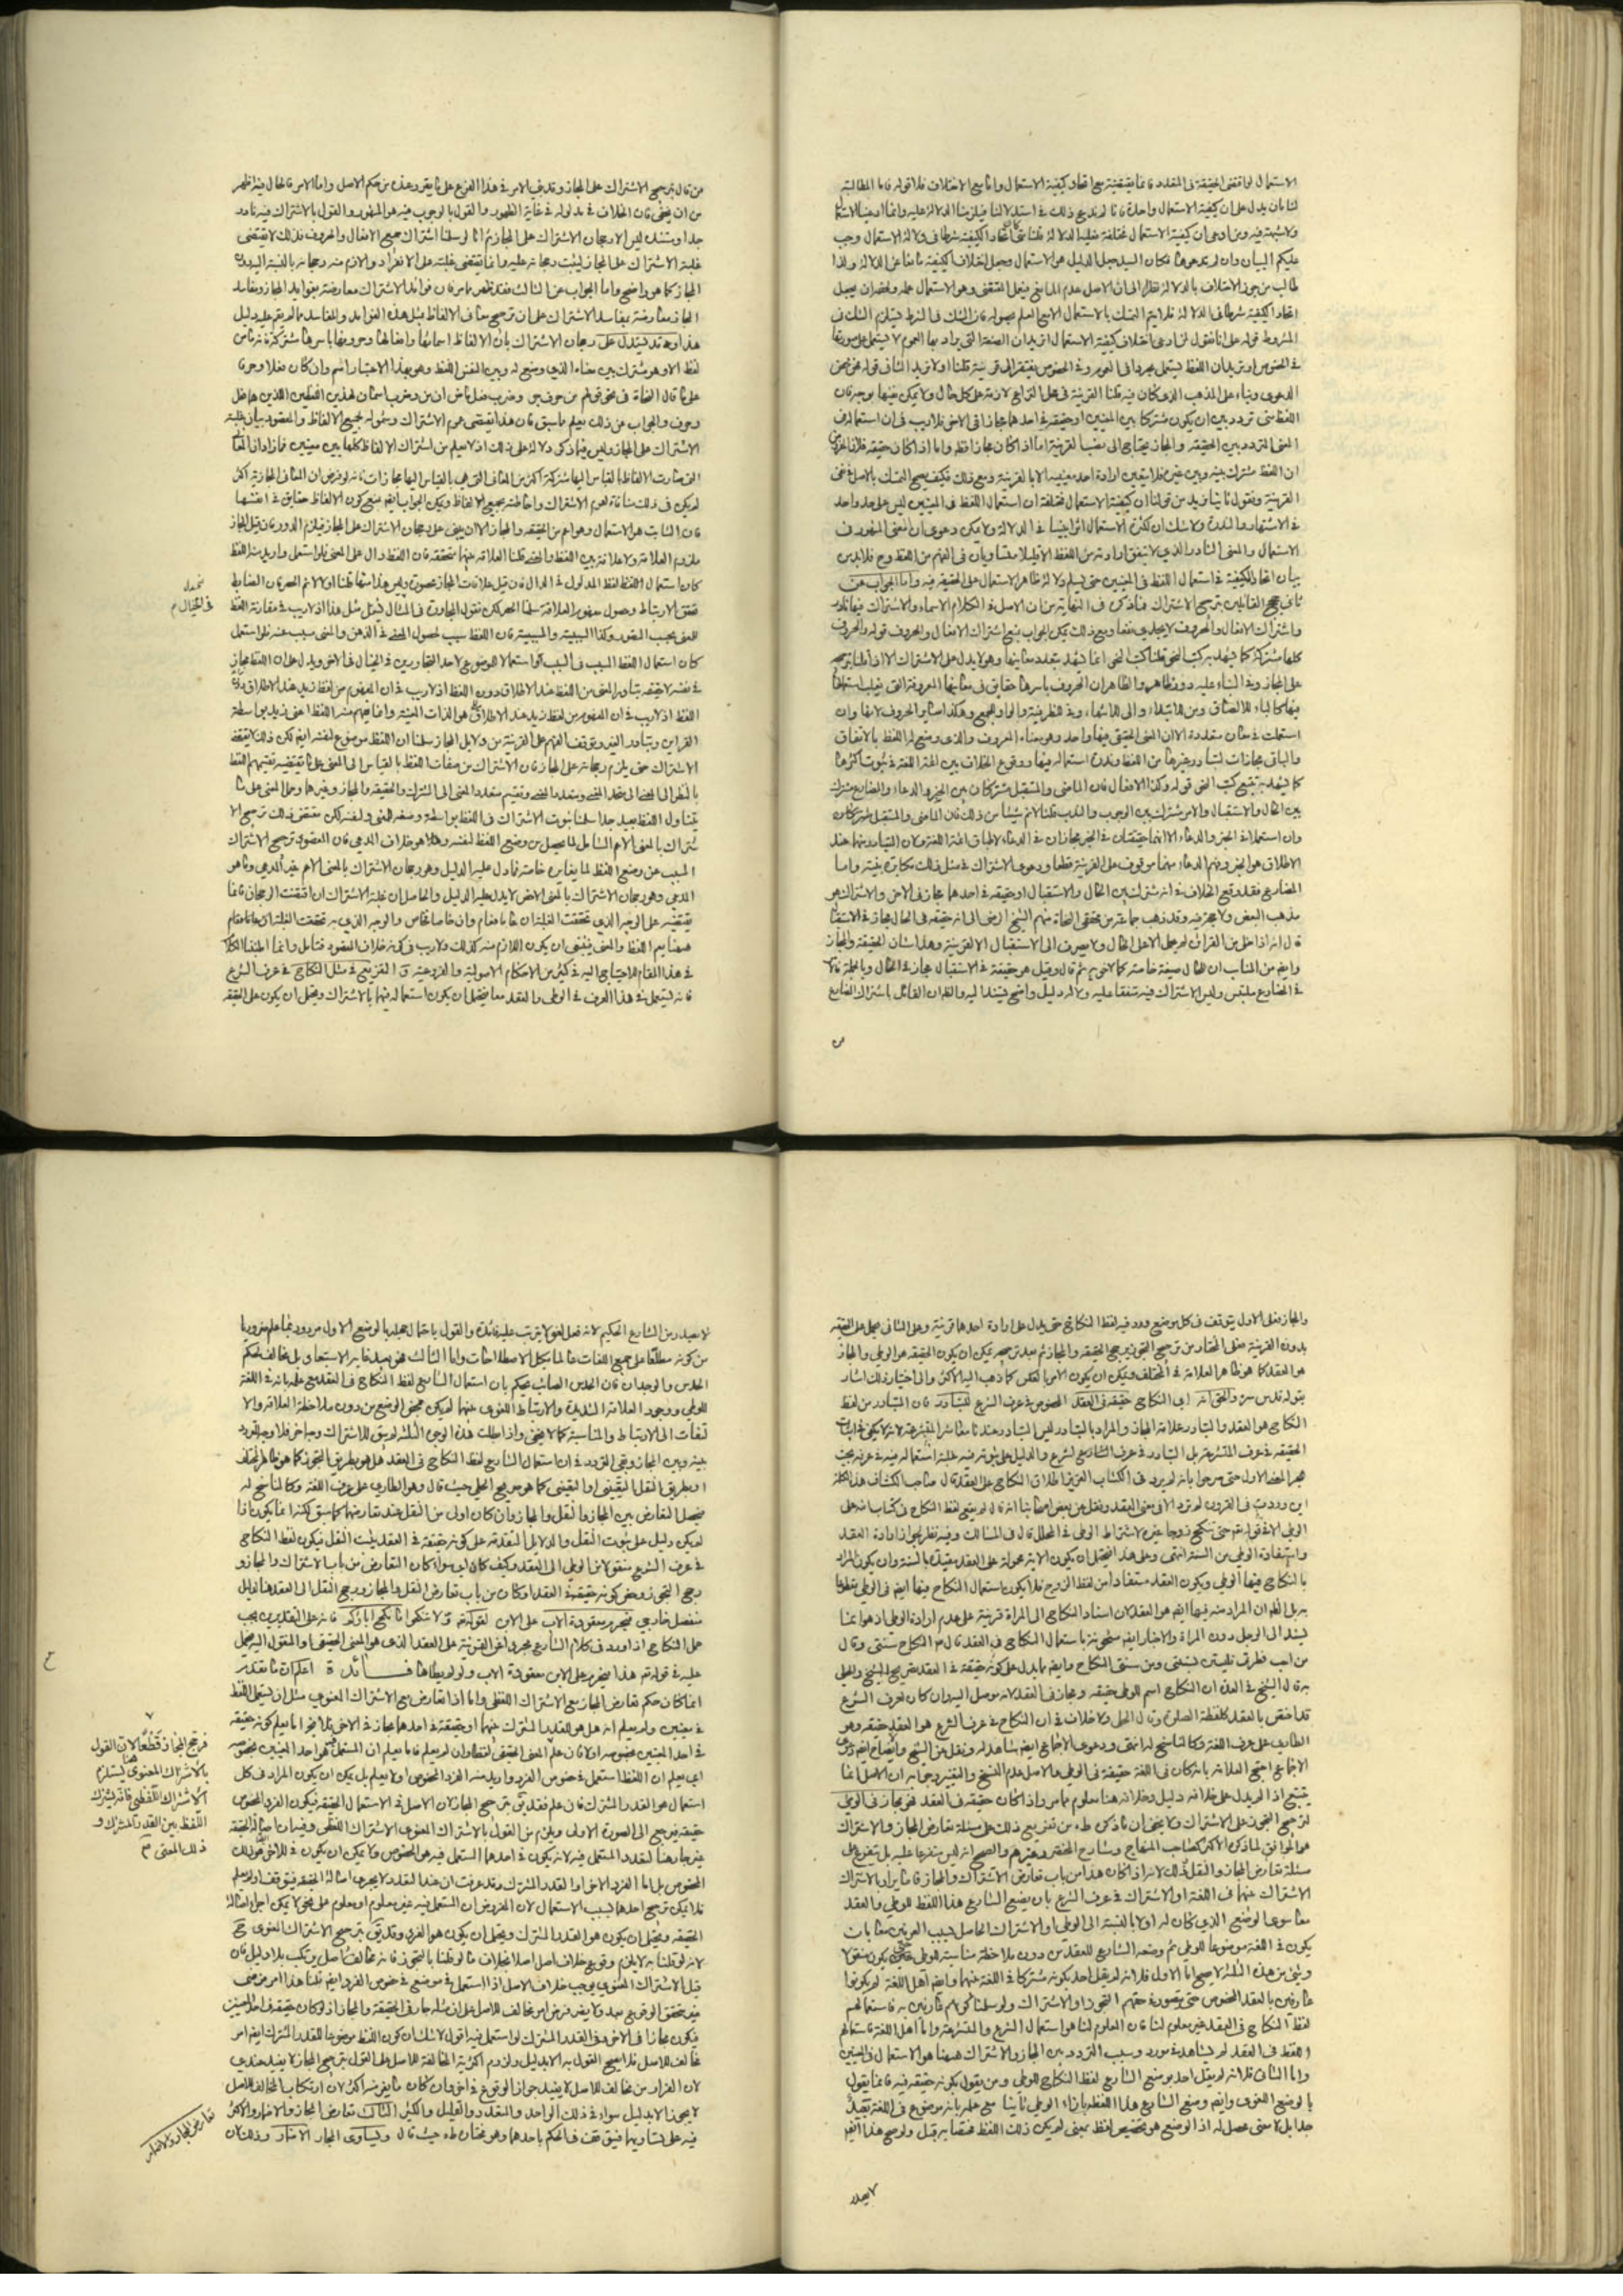 الاستعمال لو اقتضى الحقيقة في المتعدد فانما يقتضيه مع اتحاد كيفية الاستعمال واما مع الاختلاف فلا قوله فاما المطالبة
لنا بان يدل على ان كيفية الاستعمال واحدة فانا لم ندع ذلك في استدلالنا فيلزمنا الدلالة عليه وانما ادعينا الاستعمال
ولا شبهة فيه ومن ادعى ان كيفية الاستعمال مختلفة فعليه الدلالة قلنا متى كان اتحاد الكيفية شرطا في دلالة الاستعمال وجب
عليكم البيان وان لم تدعوها فكان السيد جعل الدليل هو الاستعمال وجعل اختلاف الكيفية مانعا عن الدلالة ولذا
طالب من جوز الاختلاف بالدلالة نظرا الى ان الاصل عدم المانع فيعمل المقتضى وهو الاستعمال عمله
اتحاد الكيفية شرطا في الدلالة فلا يتم التمسك بالاستعمال الا مع العلم بحصوله فان الشك في الشرط يستلزم الشك في
المشروط قوله على انا نقول لمن ادعى اختلاف كيفية الاستعمال اتريد ان الصيغة التي يراد بها العموم لا يستعمل على صورتها
في الخصوص او تريد ان اللفظ يستعمل مجردا في العموم وفي الخصوص يفتقر الى قرينة قلنا اولا نريد الثاني قوله هو محض
الدعوى وبناء على المذهب الذي كان فيه قلنا القرينة في محل النزاع لازمة على كل حال ولا يمكن نفيها بوجه فان
اللفظ متى تردد بين ان يكون مشتركا بين المعنيين او حقيقة في احدهما مجازا في الاخر فلا ريب في ان استعماله في
المعنى المتردد بين الحقيقة والمجاز يحتاج الى نصب القرينة اما اذا كان مجازا فظ واما اذا كان حقيقة
ان اللفظ مشترك بينه وبين غيره فلا يتعين ارادة احد معنييه الا بالقرينة ومع ذلك فكيف يصح التمسك بالاصل في نفي
القرينة ونقول ثانيا نريد من قولنا ان كيفية الاستعمال مختلفة ان استعمال اللفظ في المعنيين ليس على حد واحد
في الاشتهار والندرة ولا شك ان لكثرة الاستعمال اثرا بينا في الدلالة ولا يمكن دعوى ان المعنى المشهور في
الاستعمال والمعنى النادر الذي لا يتفق ارادته من اللفظ الا قليلا متساويان في الفهم من اللفظ وح فلا بد من
بيان اتحاد الكيفية في استعمال اللفظ في المعنيين حتى يسلم دلالة ظاهر الاستعمال على الحقيقة فيه واما الجواب عن
ثاني حجج القائلين بترجيح الاشتراك فما ذكره في النهاية من ان الاصل في الكلام الاسماء والاشتراك فيها نادر
واشتراك الافعال والحروف لا يجدي نفعا ومع ذلك يمكن الجواب بمنع اشتراك الافعال والحروف قوله والحروف
كلها مشتركة كما يشهد به كتب النحو قلنا كتب النحو انما يشهد بتعدد معانيها وهو لا يدل على الاشتراك الا اذا قلنا بترجيحه
على المجاز وفي البناء عليه دور ظاهر والظاهر ان الحروف باسرها حقايق في معانيها المعروفة التي يغلب استعمالها
فيها كالباء للالصاق ومن للابتداء والى للانتهاء وفي للظرفية والواو للجمع وهكذا سائر الحروف لانها وان
استعملت في معان متعددة الا ان المعنى الحقيقي فيها واحد وهو معناه المعروف والذي وضع له اللفظ بالاتفاق
والباقي مجازات لتبادر غيرها من اللفظ وندرة استعماله فيها ووقوع الخلاف بين ائمة اللغة في ثبوت اكثرها
كما يشهد به تتبع كتب النحو قوله وكذا الافعال فان الماضي والمستقبل مشتركان بين الخبر والدعاء والمضارع مشترك
بين الحال والاستقبال والامر مشترك بين الوجوب والندب قلنا لا نم شيئا من ذلك فان الماضي والمستقبل مشتركان
وان استعملا في الخبر والدعاء الا انهما حقيقتان في الخبر مجازان في الدعاء لاطباق ائمة اللغة ولان المتبادر منهما عند
الاطلاق هو الخبر وفهم الدعاء منهما موقوف على القرينة قطعا ودعوى الاشتراك في مثل ذلك مكابرة بينة واما
المضارع فقد وقع الخلاف في انه مشترك بين الحال والاستقبال او حقيقة في احدهما مجاز في الاخر والاشتراك هو
مذهب البعض وقد ذهب جماعة من محققي النحاة منهم الشيخ الرضي الى انه حقيقة في الحال مجاز في الاستقبال
قال انه اذا خلى من القرائن لم يحمل الا على الحال ولا يصرف الى الاستقبال الا لقرينة وهذا شان الحقيقة والمجاز
وايضا من المناسب ان للحال صيغة خاصة كما لاخويه ثم قال وقيل هو حقيقة في الاستقبال مجاز في الحال وبالجملة فالامر
في المضارع ملتبس وليس الاشتراك فيه متفقا عليه ولا له دليل واضح يستند اليه والظ ان القائل باشتراك المضارع
من
من قال بترجيح الاشتراك على المجاز وقد بنى الامر في هذا الفرع على ما يقرر عنده من حكم الاصل واما الامر فالحال فيه اظهر
من ان يخفى فان الخلاف في مدلوله في غاية الظهور والقول بالوجوب فيه هو المشهور والقول بالاشتراك فيه نادر
جدا ومستنده ليس الا رجحان الاشتراك على المجاز ثم انا لو سلمنا اشتراك جميع الافعال والحروف فذلك لا يقتضى
غلبة الاشتراك على المجاز ليثبت رجحانه عليه وانما يقتضى غلبته على الانفراد ولا لازم منه رجحانه بالنسبة اليه دون
المجاز كما هو واضح واما الجواب عن الثالث فقد ظهر مما مر فان فوائد الاشتراك معارضة بفوايد المجاز ومفاسد
المجاز معارضة بمفاسد الاشتراك على ان ترجيح معاني الالفاظ بمثل هذه الفوايد والمفاسد مما لم يقم عليه دليل
هذا وقد يستدل على رجحان الاشتراك بان الالفاظ اسمائها وافعالها وحروفها باسرها مشتركة فانه ما من
لفظ الا وهو مشترك بين معناه الذي وضع له وبين نفس اللفظ وهو بهذا الاعتبار اسم وان كان فعلا وحرفا
على ما قال النحاة في نحو قولهم من حرف جر وضرب فعل ماض ان من وضرب اسمان لهذين اللفظين اللذين هما فعل
وحرف والجواب عن ذلك يعلم مما سبق فان هذا يقتضى عموم الاشتراك وشموله لجميع الالفاظ والمقصود بيان غلبة
الاشتراك على المجاز وليس فيما ذكر دلالة على ذلك اذ لا يعلم من اشتراك الالفاظ كلها بين معنيين
لم يكن في ذلك منافاة لعموم الاشتراك واحاطته بجميع الالفاظ ويمكن الجواب ايضا بمنع كون الالفاظ حقايق في انفسها
فان الثابت هو الاستعمال وهو اعم من الحقيقة والمجاز الا ان يبنى على رجحان الاشتراك على المجاز فيلزم الدور فان قيل المجاز
ملزوم العلاقة ولا علاقة بين اللفظ والمعنى قلنا العلاقة بينهما متحققة فان اللفظ دال على المعنى فلو استعمل واريد به اللفظ
كان استعمال اللفظ لفظ المدلول في الدال فان قيل علاقات المجاز محصورة وليس هذا منها قلنا اولا نم الحصر فان الضابط
تحقق الارتباط وحصول مفهوم العلاقة سلمنا الحصر لكن نقول المجاورة في المثال تشمل مثل هذا اذ لا ريب في مقارنة اللفظ
للمعنى بحسب التصور وكذا السببية والمسببية فان اللفظ سبب لحصول المعنى في الذهن والمعنى مسبب عنه فلو استعمل
كان استعمال اللفظ السبب في المسبب او استعمالا لموضوع لاحد المتجاورين في الخيال في الاخر ويدل على ان اللفظ مجاز
في نفسه لا حقيقة تبادر المعنى من اللفظ عند الاطلاق دون اللفظ اذ لا ريب في ان المفهوم من لفظ زيد عند الاطلاق
القراين وتبادر الغير وتوقف الفهم على القرينة من دلايل المجاز سلمنا ان اللفظ موضوع لنفسه ايضا لكن ذلك لا يقتضى
الاشتراك حتى يلزم رجحانه على المجاز فان الاشتراك من صفات اللفظ بالقياس الى المعنى على ما يقتضيه تقسيمهم اللفظ
بالنظر الى المعنى الى متحد المعنى ومتعدد المعنى وتقسيم متعدد المعنى الى المشترك والحقيقة والمجاز وغيرهما وحمل المعنى على ما
يتناول اللفظ بعيد جدا سلمنا ثبوت الاشتراك في اللفظ بواسطة وضعه للمعنى ولنفسه لكن مقتضى ذلك ترجيح الا
شتراك بالمعنى الاعم الشامل لما يحصل من وضع اللفظ لنفسه وهو خلاف المدعى فان المقصود ترجيح الاشتراك
المسبب عن وضع اللفظ لما يغايره خاصة فما دل عليه الدليل وهو رجحان الاشتراك بالمعنى الاعم غير المدعى وما هو
المدعى وهو رجحان الاشتراك بالمعنى الاخص لا يدل عليه الدليل والحاصل ان غلبة الاشتراك ان اقتضت الرجحان فانما
يقتضيه على الوجه الذي تحققت الغلبة ان عاما فعام وان خاصا فخاص والوجه الذي به تحققت الغلبة
فينبغى ان يكون اللازم منه كذلك ولا ريب في كونه خلاف المقصود فتامل وانما اطنبنا الكلام
في هذا المقام للاحتياج اليه في كثير من الاحكام الاصولية والفرعية ق التفريع في مثل النكاح في عرف الشرع
فانه يستعمل في هذا العرف في الوطى والعقد معا فيحتمل ان يكون استعماله فيهما بالاشتراك ويحتمل ان يكون على الحقيقة
في الخيال م
والمجاز فعلى الاول يتوقف في كل موضع ورد فيه لفظ النكاح حتى يدل على ارادة احدهما قرينة وعلى الثاني يحمل على الحقيقة
بدون القرينة فعلى المختار من ترجيح التجوز يرجح الحقيقة والمجاز ثم بعد ترجيحه يمكن ان يكون الحقيقة هو الوطى والمجاز
هو العقد كما هو ظاهر العلامة في المختلف ويمكن ان يكون الامر بالعكس كما ذهب اليه الاكثر والى اختيار ذلك اشار
بقوله قدس سره والحق انه اى النكاح حقيقة في العقد المخصوص في عرف الشرع للتبادر فان المتبادر من لفظ
النكاح هو العقد والتبادر علامة المجاز والمراد بالتبادر ليس التبادر عندنا
الحقيقة في عرف المتشرعة بل التبادر في عرف الشارع والدليل على ثبوته فيه غلبة استعماله فيه في عرفه بحيث
هجر المعنى الاول حتى صرحوا بانه لم يرد في الكتاب العزيز اطلاق النكاح على العقد قال صاحب الكشاف هذه الكلمة
اين وردت في القرآن لم ترد الا في معنى العقد ونقل عن بعض اصحابنا انه قال لم يقع لفظ النكاح في كتاب الله على
الوطى الا في قوله تعالى حتى تنكح زوجا غيره لاشتراط الوطى في المحلل قال في المسالك وفيه نظر لجواز ارادة العقد
واستفادة الوطى من السنة انتهى وعلى هذا فيحتمل ان يكون الاية محمولة على العقد مقيدا بالسنة وان يكون المراد
بالنكاح فيها الوطى ويكون العقد مستفادا من لفظ الزوج فلا يكون استعمال النكاح فيها ايضا في الوطى مقطوعا
به بل الظ ان المراد منه فيها ايضا هو العقد لان اسناد النكاح الى المراة قرينة على عدم ارادة الوطى اذ هو انما
يسند الى الرجل دون المراة والاخبار ايضا مشحونة باستعمال النكاح في العقد قال ص النكاح سنتى وقال
من احب فطرتى فليستن بسنتى ومن سنتى النكاح وايضا مما يدل على كونه حقيقة في العقد تصريح الشيخ والحلى
به قال الشيخ في العدة ان النكاح اسم للوطى حقيقة ومجاز في العقد لانه موصل اليه وان كان بعرف الشرع
قد اختص بالعقد كلفظة الصلوة وقال الحلى ولا خلاف في ان النكاح في عرف الشرع هو العقد حقيقة وهو
الطارى على عرف اللغة وكالناسخ له انتهى ودعوى الاجماع ايضا شاهد له ونقل عن الشيخ
الاجماع احتج العلامة بانه كان في اللغة حقيقة في الوطى والاصل عدم النسخ والتغيير وجوابه ان الاصل انما
يتبع اذا لم يدل على خلافه دليل وخلافه هنا معلوم بما مر واذا كان حقيقة في العقد فهو مجاز في الوطى
لترجيح التجوز على الاشتراك ولا يخفى ان ما ذكره طاب من تفريع ذلك على مسئلة تعارض المجاز والاشتراك
هو الموافق لما ذكره الاكثر كصاحب المنهاج وشارح المختصر وغيرهم والصحيح انه ليس متفرعا عليه بل يتفرع على
مسئلة تعارض المجاز والنقل وذلك لانه اذا كان هذا من باب تعارض الاشتراك والمجاز فاما يراد بالاشتراك
الاشتراك بينهما في اللغة او الاشتراك في عرف الشرع بان يضع الشارع هذا اللفظ للوطى والعقد
معا سوى الوضع الذي كان له اولا بالنسبة الى الوطى او الاشتراك الحاصل بسبب العرفين معا بان
يكون في اللغة موضوعا للوطى ثم وضعه الشارع للعقد من دون ملاحظة مناسبته للوطى حتى يكون منقولا
وشئ من هذه الثلثة لا يصح اما الاول فلانه لم يقل احد بكونه مشتركا في اللغة بينهما وايضا اهل اللغة لم يكونوا
عارفين بالعقد المخصوص حتى يتصور في حقهم التجوز او الاشتراك ولو سلمنا كونهم عارفين به فاستعمالهم
لفظ النكاح في العقد غير معلوم لنا فان المعلوم لنا هو استعمال الشرع والمتشرعة واما اهل اللغة فاستعمالهم
اللفظ في العقد لم نشاهده وسبب التردد بين المجاز والاشتراك هيهنا هو الاستعمال في المعنيين
واما الثانى فلانه لم يقل احد بوضع الشارع لفظ النكاح للوطى ومن يقول بكونه حقيقة فيه فانما يقول
بالوضع اللغوى وايضا وضع الشارع هذا اللفظ بازاء الوطى ثانيا مع علمه بانه موضوع في اللغة بعيد
جدا بل لا معنى محصل له اذ الوضع هو تخصيص لفظ بمعنى لم يكن ذلك اللفظ مختصا به قبل ولو صح هذا ايضا
لا يصدر
لا يصدر من الشارع الحكيم لانه فعل لغو لا يترتب عليه فائدة والقول باحتمال جهله بالوضع الاول مردود بما علم ضرورة
من كونه مطلعا على جميع اللغات عالما بكل الاصطلاحات واما الثالث فهو بعيد غاية الاستبعاد بل مخالف لحكم
الحدس والوجدان فان الحدس الصائب يحكم بان استعمال الشارع لفظ النكاح في العقد مع علمه بانه في اللغة
للوطى ووجود العلاقة الشديدة والارتباط المعنوى بينهما لم يكن بمحض الوضع من دون ملاحظة العلاقة والا
لتفات الى الارتباط والمناسبة كما لا يخفى واذا بطلت هذه الوجوه الثلثة لم يبق للاشتراك وجه اخر فلا وجه للتردد
بينه وبين المجاز وبقى التردد في ان استعمال الشارع لفظ النكاح في العقد هل هو بطريق التجوز كما هو ظاهر المختلف
او بطريق النقل التعيينى او التعينى كما هو صريح الحلى حيث قال وهو الطارى على عرف اللغة وكالناسخ له
فيحصل التعارض بين المجاز والنقل والمجاز وان كان اولى من النقل عند تعارضهما كما سبق لكنه انما يكون اذا
لم يكن دليل على ثبوت النقل والدلايل المتقدمة على كونه حقيقة في العقد يثبت النقل فيكون لفظ النكاح
في عرف الشرع منقولا من الوطى الى العقد وكيف كان اى سواء كان التعارض من باب الاشتراك والمجاز و
رجح التجوز وفرض كونه حقيقة في العقد او كان من باب تعارض النقل والمجاز ورجح النقل الى العقد هنا بدليل
منفصل خارجى فتحرم معقودة الاب على الابن لقوله تع ولا تنكحوا ما نكح اباؤكم فانه على التقديرين يجب
حمل النكاح اذا ورد في كلام الشارع مجردا عن القرينة على العقد الذي هو المعنى الحقيقى او المنقول اليه فيحمل
عليه في قوله تع هذا فيحرم على الابن معقودة الاب ولو لم يطاها فائدة اعلم ان ما تقدم
انما كان حكم تعارض المجاز مع الاشتراك اللفظى واما اذا تعارض مع الاشتراك المعنوى مثل ان يستعمل اللفظ
في معنيين ولم يعلم انه هل هو للقدر المشترك بينهما او حقيقة في احدهما مجاز في الاخر فلا يخ اما يعلم كونه حقيقة
في احد المعنيين بخصوصه او لا فان علم المعنى الحقيقى
اى يعلم ان اللفظ استعمل في خصوص الفرد واريد منه الفرد المخصوص او لا يعلم بل يمكن ان يكون المراد في كل
استعمال هو القدر المشترك فان علم فقد يق بترجيح المجاز لان الاصل في الاستعمال الحقيقة فيكون الفرد المخصوص
حقيقة فيرجع الى الصورة الاولى ويلزم من القول بالاشتراك المعنوى الاشتراك اللفظى وفيه ان اصالة الحقيقة
غير جارية هنا لتعدد المستعمل فيه
المخصوص بل اما الفرد الاخر او القدر المشترك وقد عرفت ان عند التعدد لا يجرى اصالة الحقيقة فيتوقف او لا يعلم
فلا يمكن ترجيح احدهما بسبب الاستعمال لان المفروض ان المستعمل فيه غير معلوم او معلوم على نحو لا يمكن اجراء اصالة
الحقيقة ويحتمل ان يكون هو القدر المشترك ويحتمل ان يكون هو الفرد وقد يق بترجيح الاشتراك المعنوى ح
لانه لو قلنا به لا يلزم وقوع خلاف اصل اصلا بخلاف ما لو قلنا بالتجوز فانه مخالف للاصل يرتكب بلا دليل فان
قيل الاشتراك المعنوى يوجب خلاف الاصل اذا استعمل في موضع في خصوص الفرد ايضا قلنا هذا امر فرضى
غير متحقق الوقوع بعد ولا يضر فرض امر مخالف للاصل على ان مثله جار في الحقيقة والمجاز اذ لو كان حقيقة في احد المعنيين
فيكون مجازا في الاخر وفي القدر المشترك لو استعمل فيه اقول لا شك ان كون اللفظ موضوعا للقدر المشترك ايضا امر
مخالف للاصل فلا يصح القول به الا بدليل ولزوم اكثرية المخالفة للاصل على القول بترجيح المجاز لا يفيد عندى
لان الفرار من مخالف للاصل لا يفيد جواز الوقوع في اخر وان كان ما يفر منه اكثر لان ارتكاب المخالف للاصل
لا يجوز الا بدليل سواء في ذلك الواحد والمتعدد والقليل والكثير الثالث تعارض المجاز والاضمار والاكثر
فيه على تساويهما فيتوقف في الحكم باحدهما وهو مختاره طاب حيث قال ويساوى المجاز الاضمار وذلك ان
فرجح المجاز قطعا لان القول
بالاشتراك المعنوى هنا يستلزم
الاشتراك اللفظى فانه يشترك
اللفظ بين القدر المشترك و
ذلك المعنى م
تعارض المجاز والاضمار